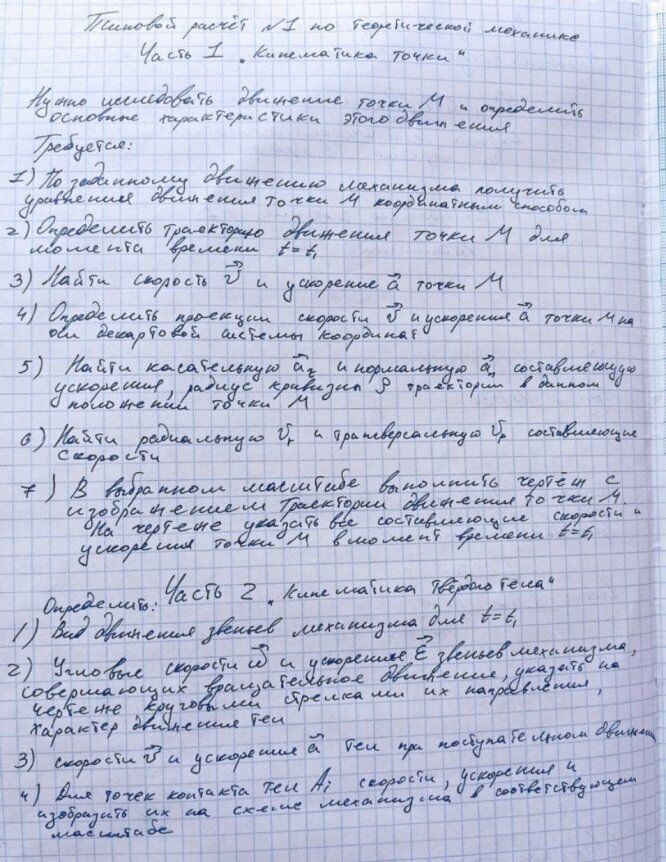 Типовой расчёт №1 по теоретической механике
Часть 1 „Кинематика точки"
Нужно исследовать движение точки М и определить
основные характеристики этого движения
Требуется:
1) По заданному движению механизма получить
уравнения движения точки М координатным способом
2) Определить траекторию движения точки М для
момента времени t=t₁
3) Найти скорость v⃗ и ускорение a⃗ точки М
4) Определить проекции скорости v⃗ и ускорения a⃗ точки М на
оси декартовой системы координат
5) Найти касательную a⃗τ и нормальную a⃗n составляющую
ускорения, радиус кривизны ρ траектории в данном
положении точки М
6) Найти радиальную vr и трансверсальную vp составляющие
скорости
7) В выбранном масштабе выполнить чертёж с
изображением траектории движения точки М.
На чертеже указать все составляющие скорости и
ускорения точки М в момент времени t=t₁
Часть 2 „Кинематика твёрдого тела"
Определить:
1) Вид движения звеньев механизма для t=t₁
2) Угловые скорости ω⃗ и ускорение ε⃗ звеньев механизма,
совершающих вращательное движение, указать на
чертеже круговыми стрелками их направления,
характер движения тел
3) скорости v⃗ и ускорения a⃗ тел при поступательном движении
4) Для точек контакта тел Ai скорости, ускорения и
изобразить их на схеме механизма в соответствующем
масштабе